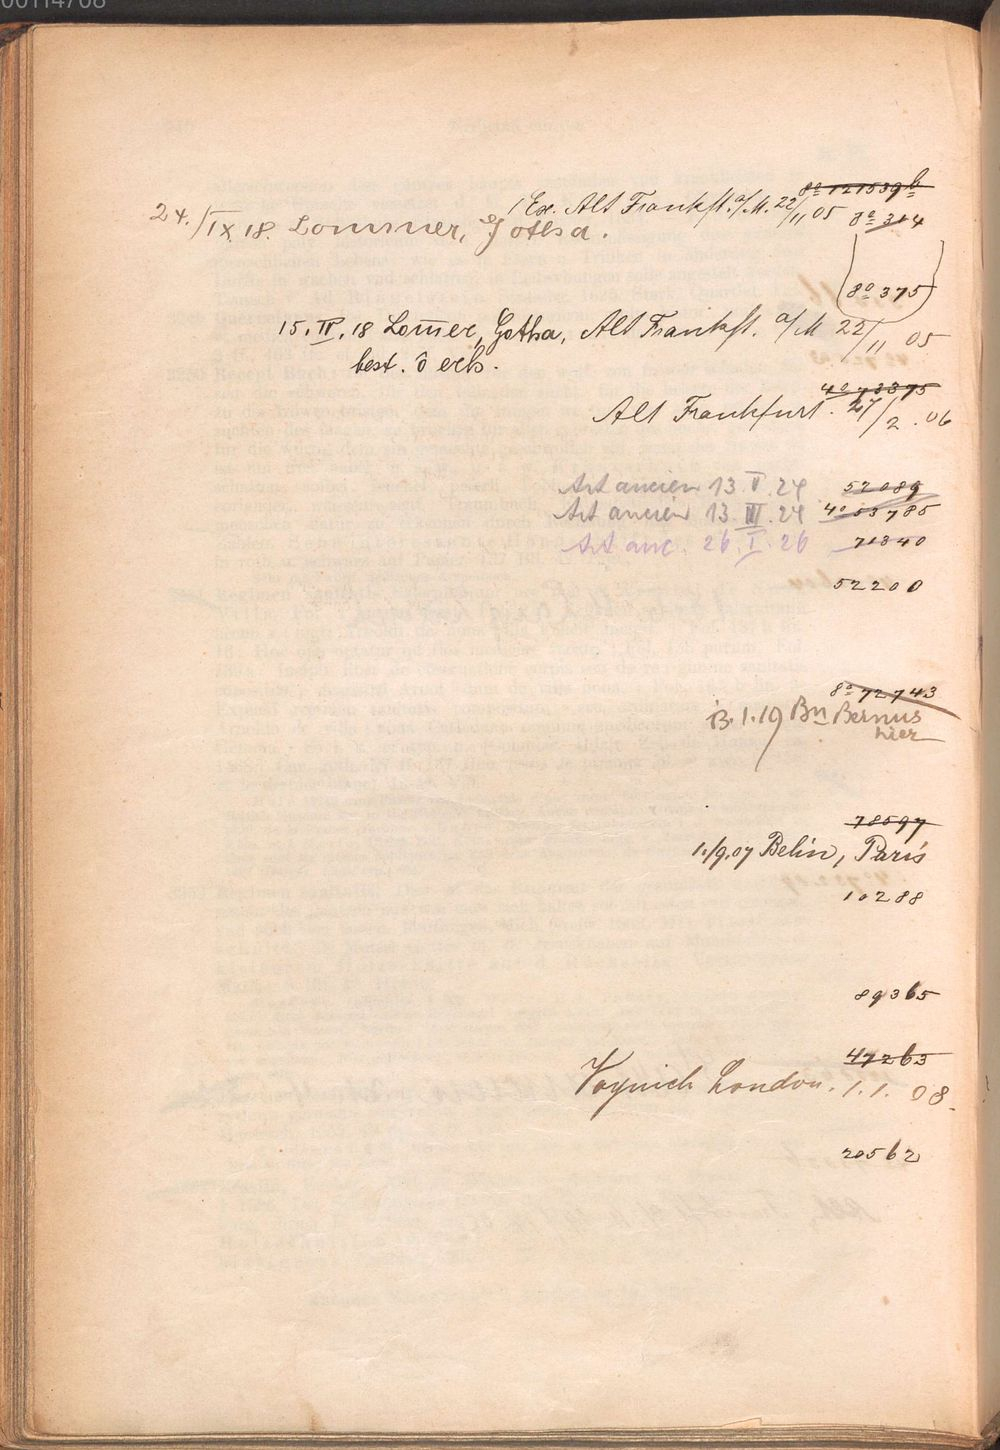 8º 121539b
1 Ex. Alt Frankft. a/M. 22/11 05 8º 314
24./IX 18. Lommer, Gotha.
(8º 375)
15. IV. 18 Lom̄er, Gotha, Alt Frankft. a/M 22/11 05
best. ô erh.
4º 73375
Alt Frankfurt. 27/2. 06
Art ancien 13. V. 24 52089
Art ancien 13. III. 24 4º 53785
Art anc. 26. I. 26 71340
52200
8º 72743
13.1.19 Bn Bernus
hier
78597
1./9.07 Belin, Paris
10288
89365
47265
Voynich London. 1.1. 08.
20562